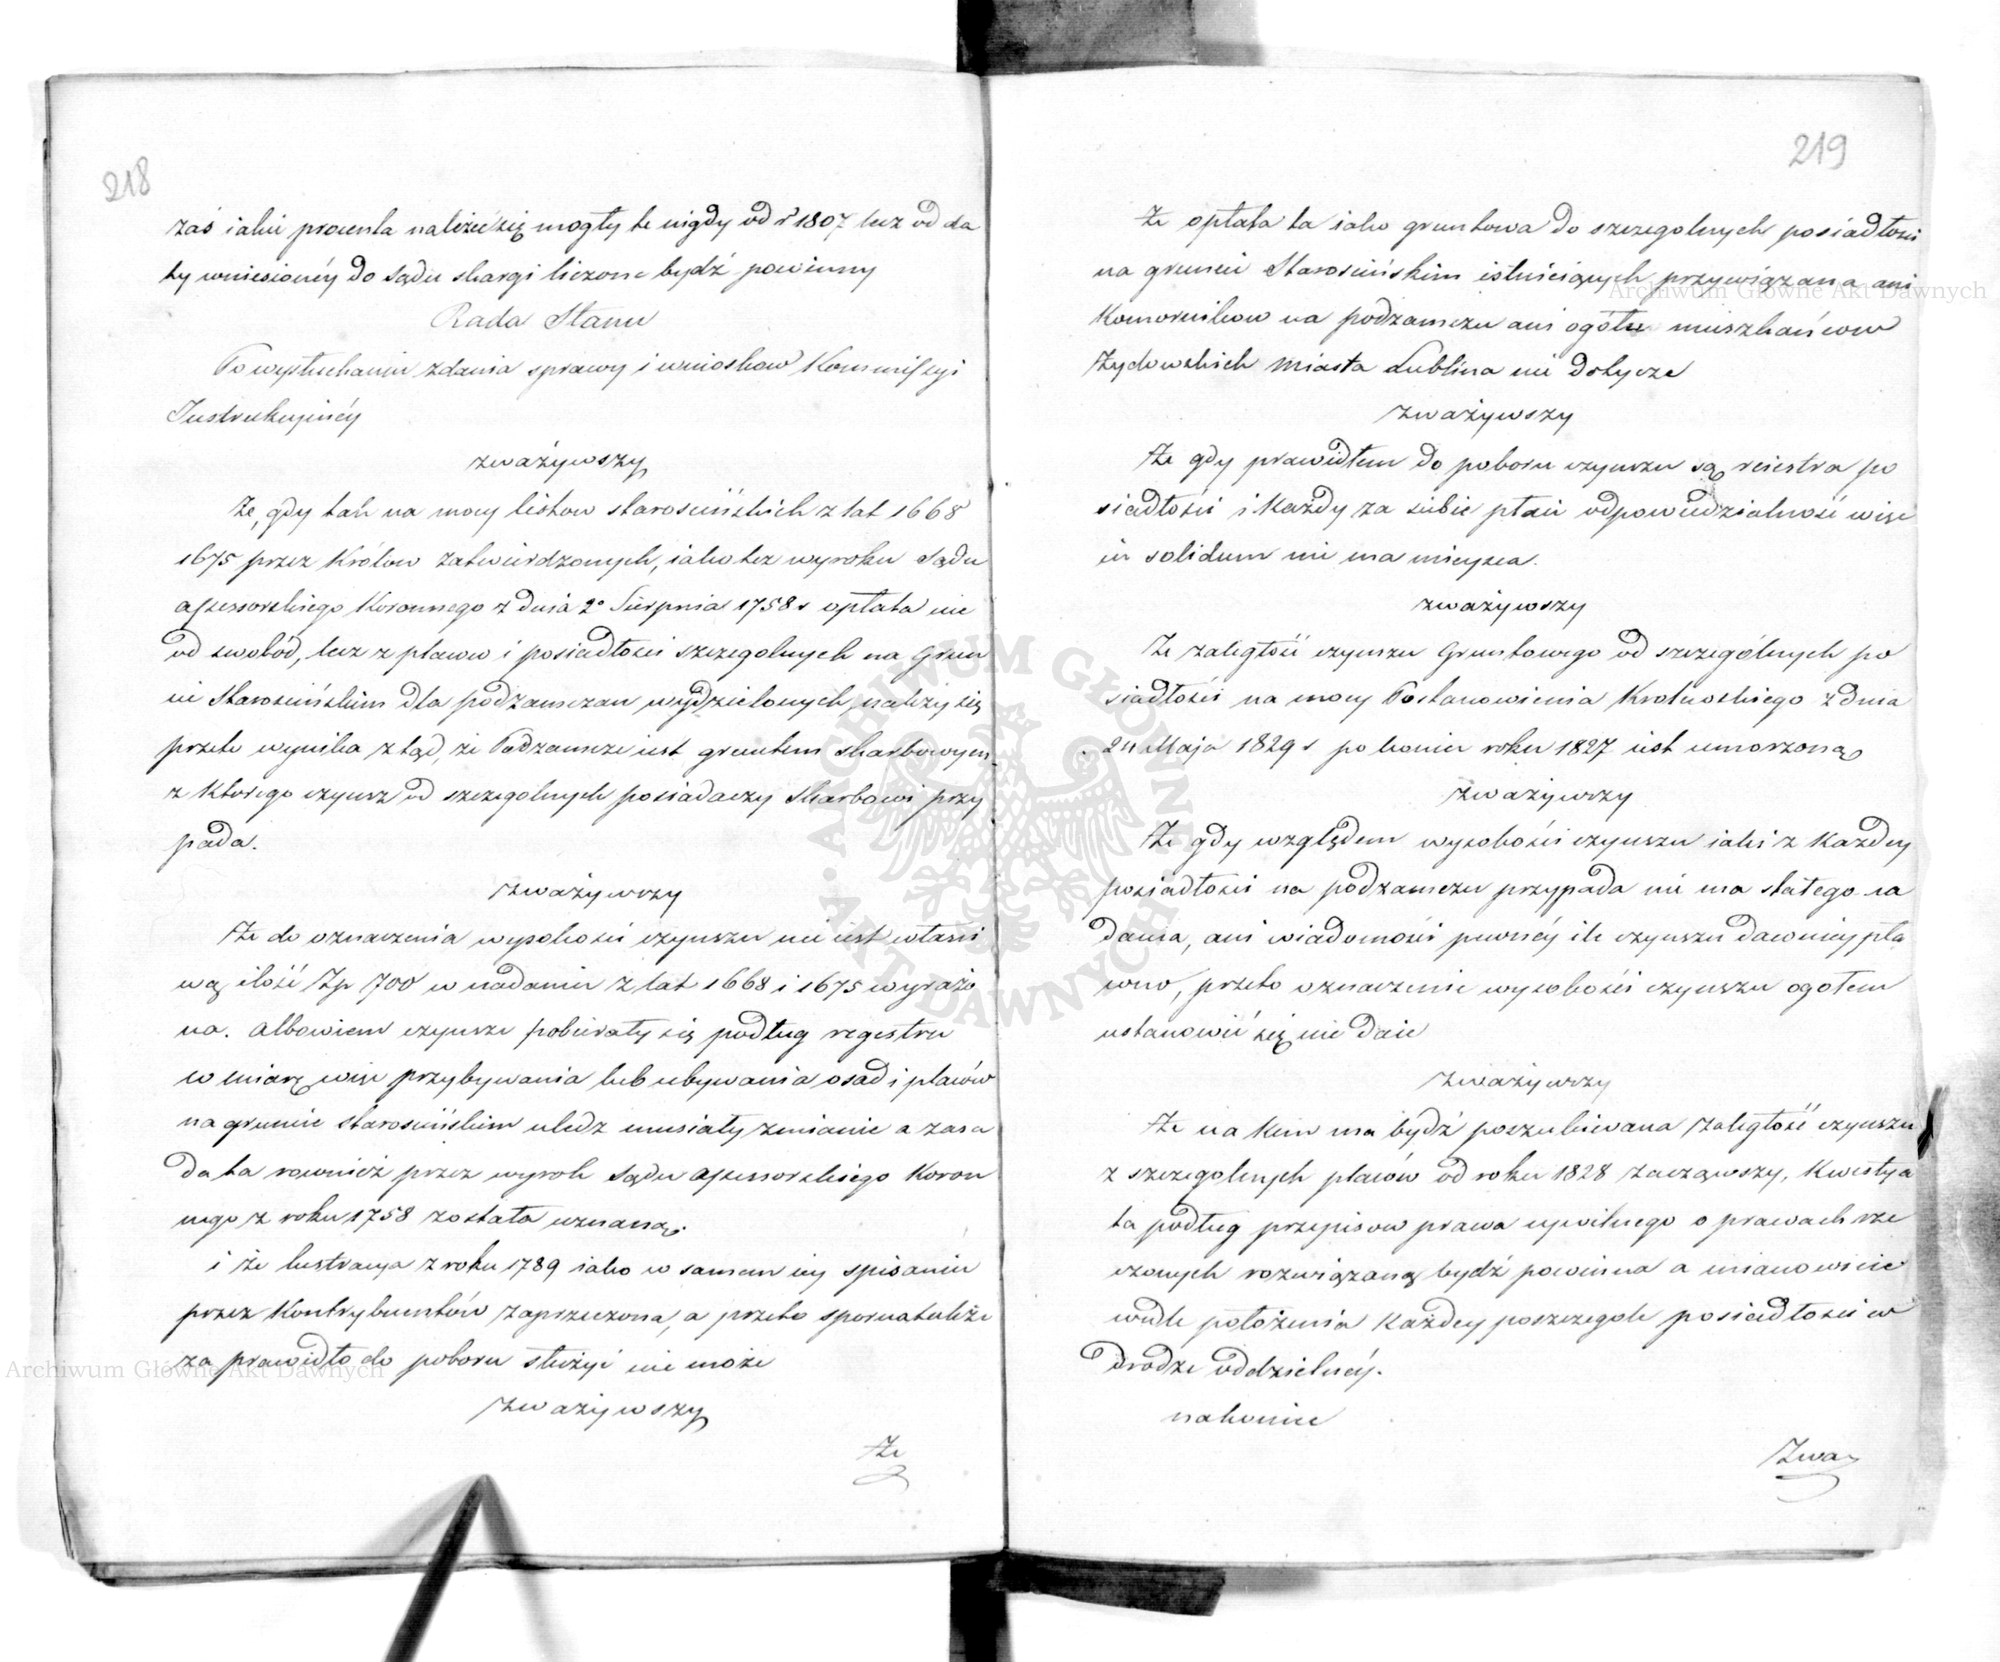 218
zaś iakie procenta należeć się mogły te nigdy od r 1807 lecz od da
ty wniesionéy do Sądu skargi liczone bydź powinny
Rada Stanu
Po wysłuchaniu zdania sprawy i wniosków Kommissyi
Instrukcyinéy
zważywszy
że, gdy tak na mocy listow starościńskich z lat 1668
1675 przez Królow zatwierdzonych, iako tez wyroku Sądu
assessorskiego Koronnego z dnia 2° Sierpnia 1758 r opłata nie
od swobód, lecz z placow i posiadłości szczegolnych na Grun
cie Starościńskim dla podzamczan wydzielonych, należy się
przeto wynika z tąd, że Podzamcze iest gruntem skarbowym
z ktorego czynsz od szczegolnych posiadaczy Skarbowi przy
pada.
zważywszy
Że do oznaczenia wysokości czynszu nie iest właści
wą ilość Złp 700 w nadaniu z lat 1668 i 1675 wyrażo
na. Albowiem czynsze pobierały się podług regestru
w miarę więc przybywania lub ubywania osad i placów
na gruncie starościńskim uledz musiały zmianie a zasa
da ta rownież przez wyrok Sądu assessorskiego Koron
nego z roku 1758 została uznaną.
i że lustracya z roku 1789 iako w samem iey spisaniu
przez Kontrybuentów zaprzeczona, a przeto sporna także
za prawidło do poboru służyć nie może
zważywszy
Że
219
Że opłata ta iako gruntowa do szczegolnych posiadłości
na gruncie Starościńskim istnieiących przywiązana ani
Komornikow na podzamczu ani ogółu mieszkańcow
Żydowskich Miasta Lublina nie dotycze
zważywszy
Że gdy prawidłem do poboru czynszu są reiestra po
siadłości i każdy za siebie płaci odpowiedzialność więc
in solidum nie ma mieysca.
zważywszy
Że zaległość czynszu Gruntowego od szczególnych po
siadłości na mocy Postanowienia Krolewskiego z dnia
24 Maja 1829 r po koniec roku 1827 iest umorzoną
zważywszy
Że gdy względem wysokości czynszu iaki z każdey
posiadłości na podzamczu przypada nie ma stałego na
dania, ani wiadomości pewnéy ile czynszu dawniey pła
cono, przeto oznaczenie wysokości czynszu ogołem
ustanowić się nie daie
zważywszy
Że na kim ma bydź poszukiwana zaległość czynszu
z szczegolnych placów od roku 1828 zacząwszy, kwestya
ta podług przepisow prawa cywilnego o prawach rze
czowych rozwiązaną bydź powinna a mianowicie
wedle położenia każdey poszczegole posiadłości w
drodze oddzielnéy.
nakoniec
Zwa
Archiwum Główne Akt Dawnych
Archiwum Główne Akt Dawnych
ARCHIWUM GŁÓWNE AKT DAWNYCH